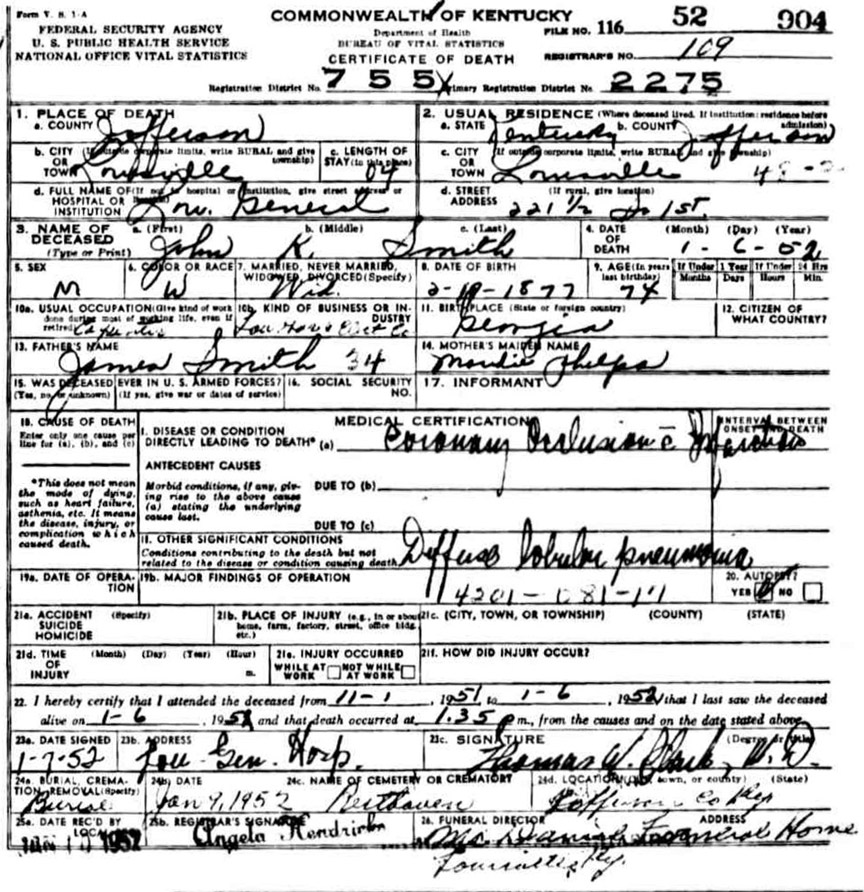 Form V. S. 1-A
COMMONWEALTH OF KENTUCKY
FEDERAL SECURITY AGENCY
U. S. PUBLIC HEALTH SERVICE
NATIONAL OFFICE VITAL STATISTICS
Department of Health
BUREAU OF VITAL STATISTICS
CERTIFICATE OF DEATH
FILE NO. 116 52 904
REGISTRAR'S NO. 109
Registration District No. 755 Primary Registration District No. 2275
1. PLACE OF DEATH
a. COUNTY Jefferson
2. USUAL RESIDENCE (Where deceased lived. If institution: residence before admission)
a. STATE Kentucky b. COUNTY Jefferson
b. CITY (If outside corporate limits, write RURAL and give township) OR TOWN Louisville
c. LENGTH OF STAY (in this place) 64
c. CITY (If outside corporate limits, write RURAL and give township) OR TOWN Louisville
d. FULL NAME OF (If not in hospital or institution, give street address or location) HOSPITAL OR INSTITUTION Lou. General
d. STREET ADDRESS (If rural, give location) 221 1/2 So 1st.
3. NAME OF DECEASED (Type or Print)
a. (First) John b. (Middle) K. c. (Last) Smith
4. DATE OF DEATH (Month) (Day) (Year) 1-6-52
5. SEX M
6. COLOR OR RACE W
7. MARRIED, NEVER MARRIED, WIDOWED, DIVORCED (Specify) Wid.
8. DATE OF BIRTH 1877
9. AGE (In years last birthday) 74
If Under 1 Year Months Days
If Under 24 Hrs Hours Min.
10a. USUAL OCCUPATION (Give kind of work done during most of working life, even if retired) Carpenter
10b. KIND OF BUSINESS OR INDUSTRY
11. BIRTHPLACE (State or foreign country) Georgia
12. CITIZEN OF WHAT COUNTRY?
13. FATHER'S NAME James Smith 34
14. MOTHER'S MAIDEN NAME Phelps
15. WAS DECEASED EVER IN U. S. ARMED FORCES? (Yes, no, or unknown) (If yes, give war or dates of service)
16. SOCIAL SECURITY NO.
17. INFORMANT
18. CAUSE OF DEATH
Enter only one cause per line for (a), (b), and (c)
MEDICAL CERTIFICATION
INTERVAL BETWEEN ONSET AND DEATH
I. DISEASE OR CONDITION DIRECTLY LEADING TO DEATH* (a) Coronary Occlusion
*This does not mean the mode of dying, such as heart failure, asthenia, etc. It means the disease, injury, or complication which caused death.
ANTECEDENT CAUSES
Morbid conditions, if any, giving rise to the above cause (a) stating the underlying cause last.
DUE TO (b)
DUE TO (c)
II. OTHER SIGNIFICANT CONDITIONS
Conditions contributing to the death but not related to the disease or condition causing death. Diffuse lobular pneumonia
19a. DATE OF OPERATION
19b. MAJOR FINDINGS OF OPERATION
20. AUTOPSY?
YES NO
21a. ACCIDENT SUICIDE HOMICIDE (Specify)
21b. PLACE OF INJURY (e.g., in or about home, farm, factory, street, office bldg. etc.)
21c. (CITY, TOWN, OR TOWNSHIP) (COUNTY) (STATE)
21d. TIME OF INJURY (Month) (Day) (Year) (Hour) m.
21e. INJURY OCCURRED
WHILE AT WORK NOT WHILE AT WORK
21f. HOW DID INJURY OCCUR?
22. I hereby certify that I attended the deceased from 11-1, 1951 to 1-6, 1952 that I last saw the deceased
alive on 1-6, 1952 and that death occurred at 1:35 p m., from the causes and on the date stated above
23a. DATE SIGNED 1-7-52
23b. ADDRESS Lou Gen. Hosp.
23c. SIGNATURE (Degree or title) Thomas W. Clark, M.D.
24a. BURIAL, CREMATION, REMOVAL (Specify) Burial
24b. DATE Jan 9, 1952
24c. NAME OF CEMETERY OR CREMATORY Resthaven
24d. LOCATION (City, town, or county) (State) Jefferson Co Ky
25a. DATE REC'D BY LOCAL JAN 10 1952
25b. REGISTRAR'S SIGNATURE Angela Hendricks
26. FUNERAL DIRECTOR ADDRESS Funeral Home
Louisville, Ky.